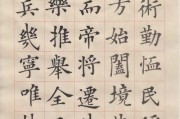 術勤恤民
方始闔境
而帝将遷
樂推舉全
兵幾寧唯